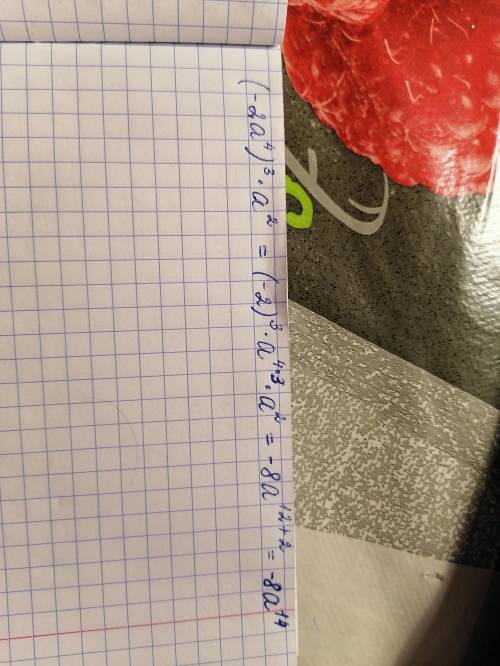 (-2a⁴)³·a² = (-2)³·a⁴·³·a² = -8a¹²⁺² = -8a¹⁴